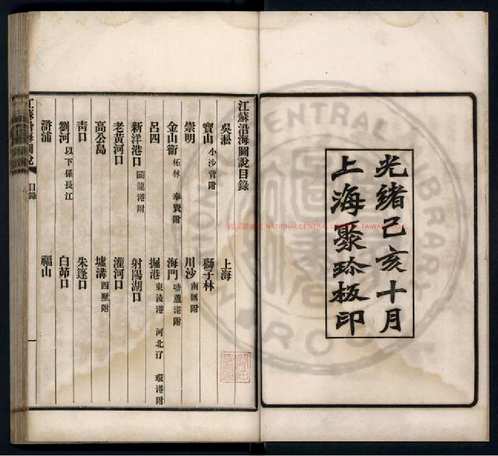 光緒己亥十月
上海聚珍板印
江蘇沿海圖說目錄
吳淞 上海
寶山 小沙背附 獅子林
崇明 川沙 南匯附
金山衞 柘林 奉賢附 海門
呂四 掘港
新洋港口 鬭龍港附 射陽湖口
老黃河口 灌河口
高公島 墟溝 西墅附
青口 朱蓬口
劉河 以下係長江 白茆口
滸浦 福山
江蘇沿海圖說 目錄